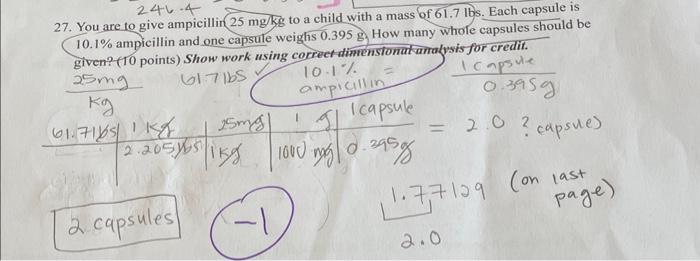 246.4
27. You are to give ampicillin 25 mg/kg to a child with a mass of 61.7 lbs. Each capsule is
10.1% ampicillin and one capsule weighs 0.395 g. How many whole capsules should be
given? (10 points) Show work using correct dimensional analysis for credit.
25mg 61.7 lbs ✓ 10.1% = 1 capsule
Kg ampicillin 0.395g
61.7 lbs 1 Kg 25mg 1 g 1 capsule = 2.0 ? capsules
2.205 lbs 1 kg 1000 mg 0.395g
1.77129 (on last
page)
2 capsules -1
2.0